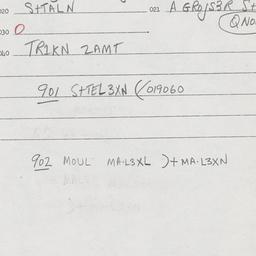 020 S+TALN 021 A GROJS3R S+
030 O QNO
060 TRIKN ZAMT
901 S+TEL3XN (/019060
902 MOUL MA·L3XL )+MA·L3XN